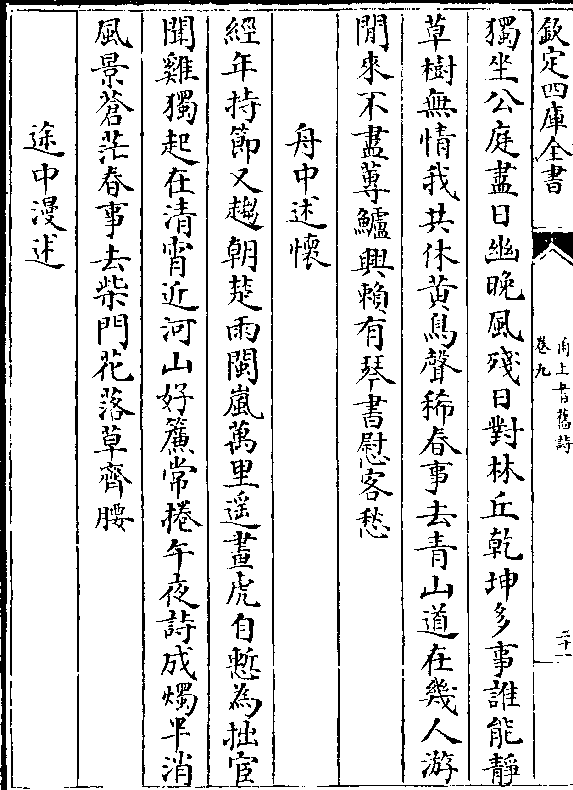 欽定四庫全書
甬上耆舊詩
卷九
二十一
獨坐公庭盡日幽晚風殘日對林丘乾坤多事誰能靜
草樹無情我共休黃鳥聲稀春事去青山道在幾人游
閒來不盡蓴鱸興賴有琴書慰客愁
舟中述懷
經年持節又趨朝楚雨閩嵐萬里遥畫虎自慙為拙宦
聞雞獨起在清宵近河山好簾常捲午夜詩成燭半消
風景蒼茫春事去柴門花落草齊腰
途中漫述